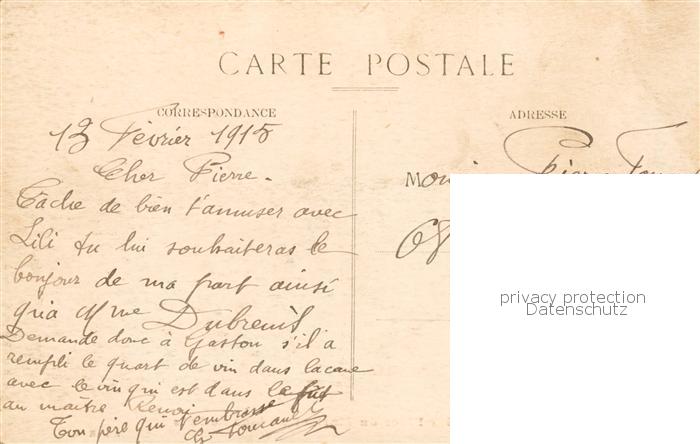 CARTE POSTALE
CORRESPONDANCE
ADRESSE
13 Février 1915
Cher Pierre.
Tâche de bien t'amuser avec
Lili tu lui souhaiteras le
bonjour de ma part ainsi
qu'a Mme Dubreuil
Demande donc à Gaston s'il a
rempli le quart de vin dans la cave
avec le vin qui est dans le fût
au maître
Ton père qui t'embrasse
Monsi Pierre
68
privacy protection
Datenschutz